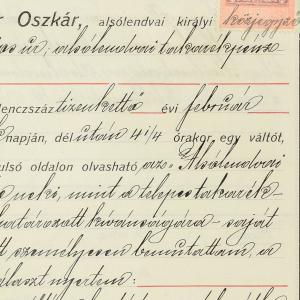 r Oszkár, alsólendvai királyi közjegyző
os úr, alsólendvai takarékpénz
lenczszáz tizenkettő évi február
napján, délután 4 1/4 órakor egy váltót,
ulsó oldalon olvasható, az „Alsólendvai
neki, mint a telepes takarék
határozott kívánságára - saját
tt személyesen bemutattam, a
választ nyertem: